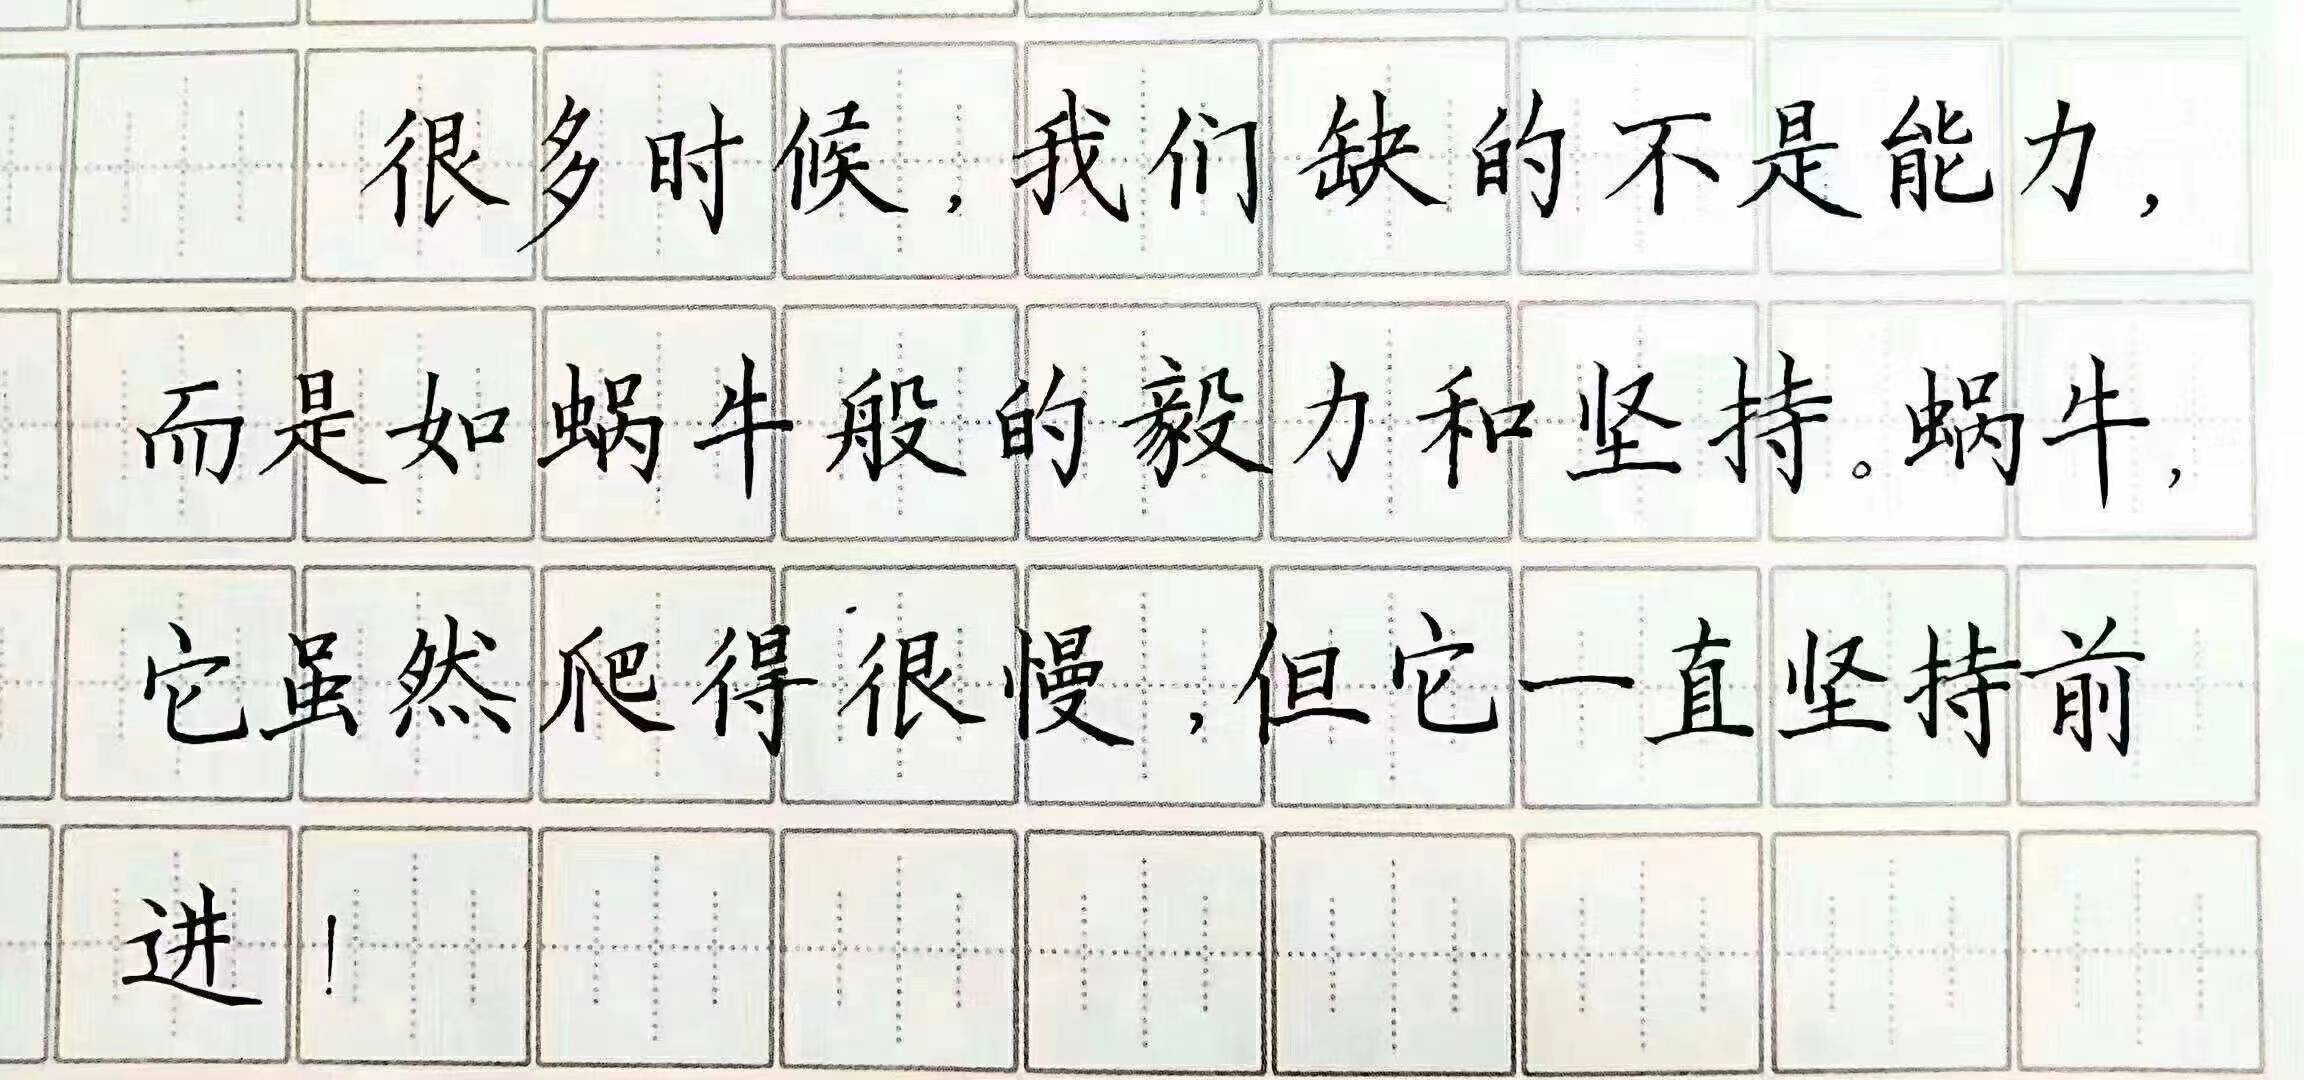 很多时候，我们缺的不是能力，
而是如蜗牛般的毅力和坚持。蜗牛，
它虽然爬得很慢，但它一直坚持前
进！